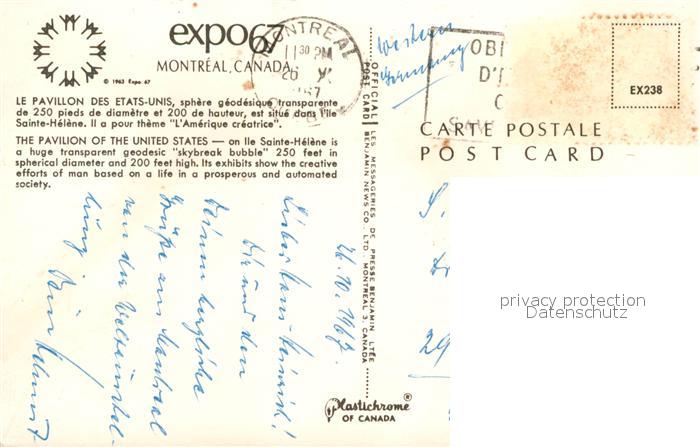 expo67
MONTRÉAL, CANADA
© 1963 Expo 67
LE PAVILLON DES ETATS-UNIS, sphère géodésique transparente
de 250 pieds de diamètre et 200 de hauteur, est situé dans l'Ile
Sainte-Hélène. Il a pour thème "L'Amérique créatrice".
THE PAVILION OF THE UNITED STATES — on Ile Sainte-Hélène is
a huge transparent geodesic "skybreak bubble" 250 feet in
spherical diameter and 200 feet high. Its exhibits show the creative
efforts of man based on a life in a prosperous and automated
society.
MONTREAL
11 30 PM
26
67
OFFICIAL
POST CARD
LES MESSAGERIES DE PRESSE BENJAMIN LTÉE
BENJAMIN NEWS CO., LTD. MONTREAL 3, CANADA
Western
Germany
OBI
D'
EX238
CARTE POSTALE
POST CARD
26.10.1967.
Lieber Hans-Heinrich!
Dir und den
Deinen herzliche
Grüße aus Montreal
von der Weltausstel-
lung.
Dein Helmut
S.
29
Plastichrome
OF CANADA
privacy protection
Datenschutz